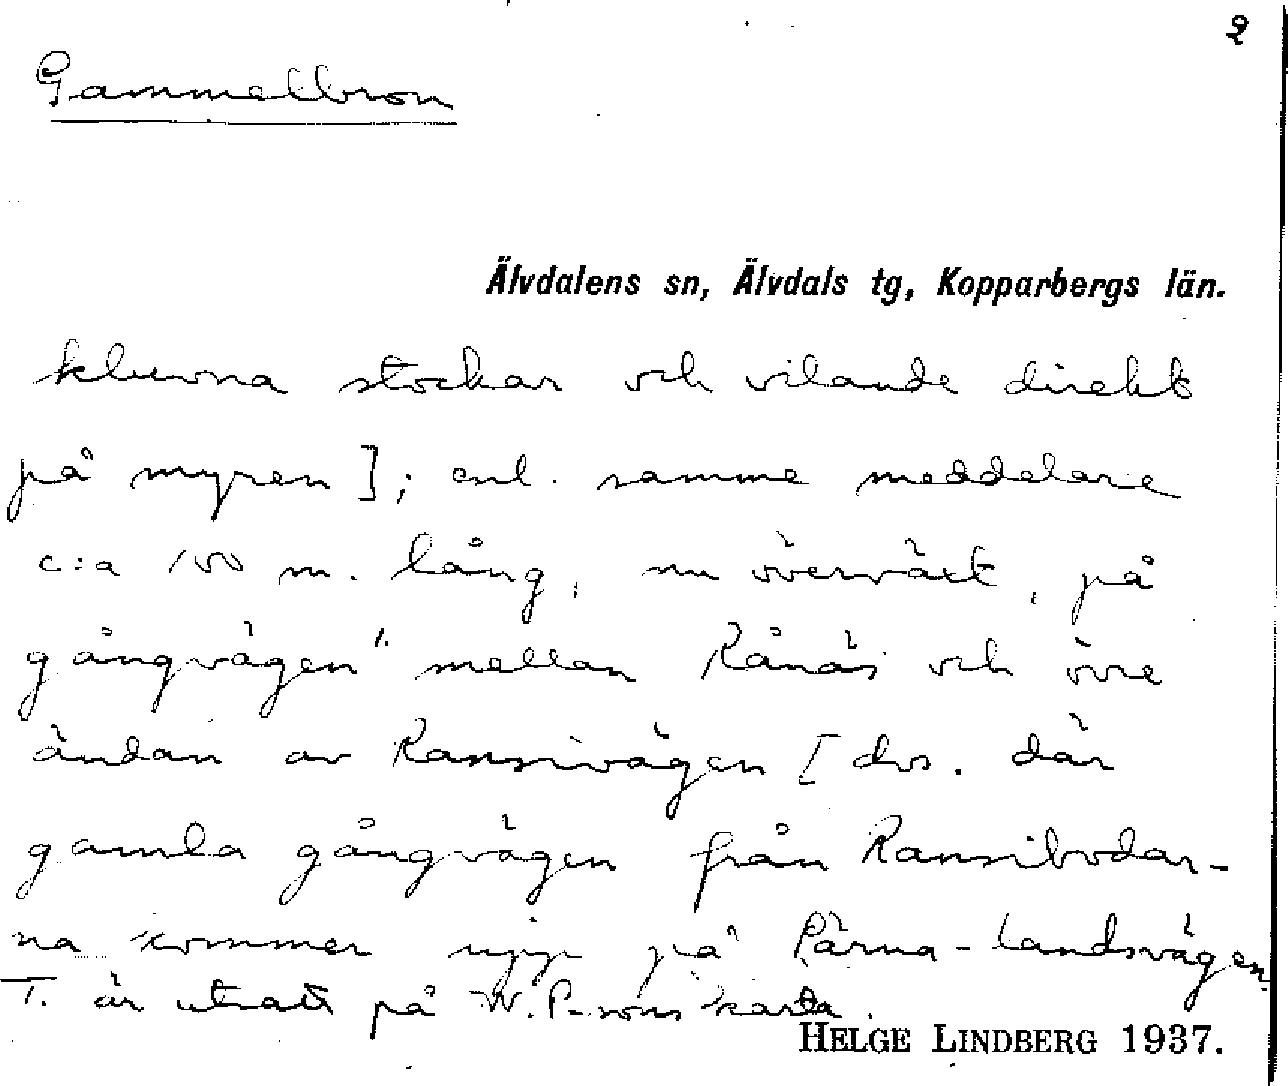 2
Gammelbron
Älvdalens sn, Älvdals tg, Kopparbergs län.
kluvna stockar och vilande direkt
på myren]; enl. samme meddelare
c:a 100 m. lång, nu överväxt, på
gångvägen 1. mellan Rånäs och övre
ändan av Ransivägen [dvs. där
gamla gångvägen från Ransibodar-
na kommer upp på Pärna-landsvägen.
1. är utsatt på W. P-sons karta.
HELGE LINDBERG 1937.